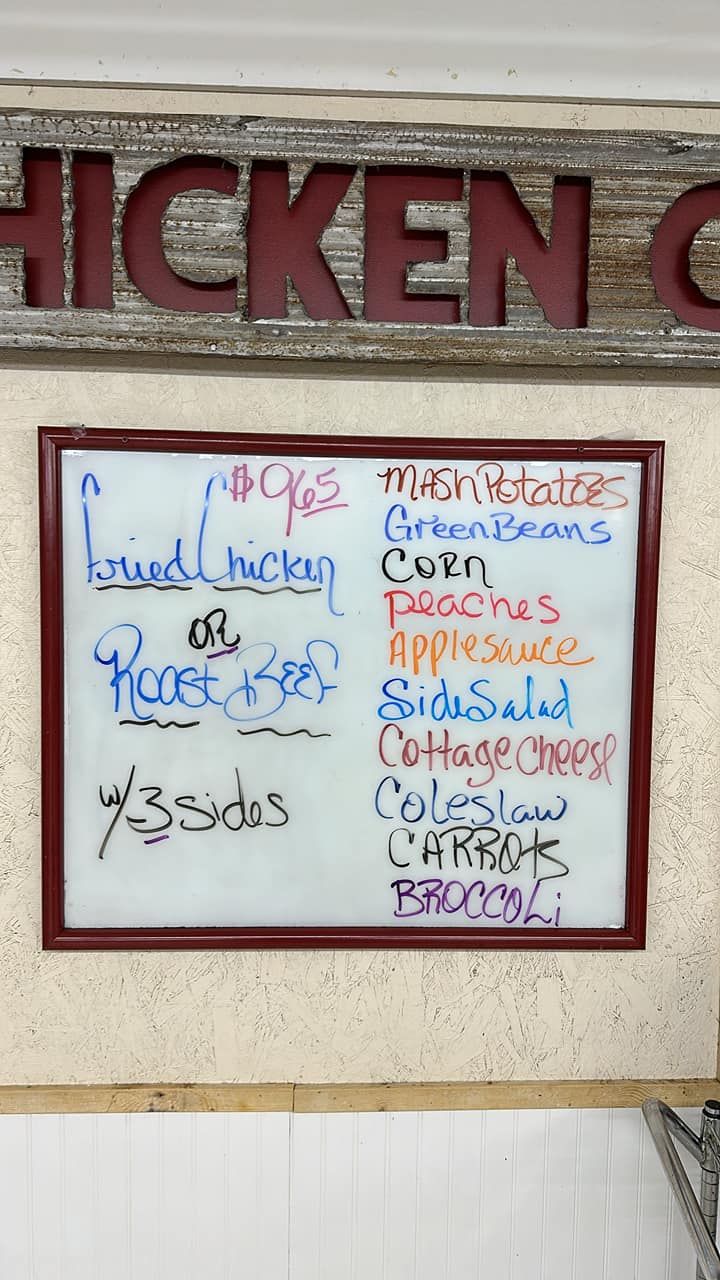 HICKEN C
$9.65
Fried Chicken
OR
Roast BEEF
w/3 sides
MASh PotatoES
Green Beans
CORn
peaches
Applesauce
Side Salad
Cottage cheese
Coleslaw
CARROts
BROCCOLi